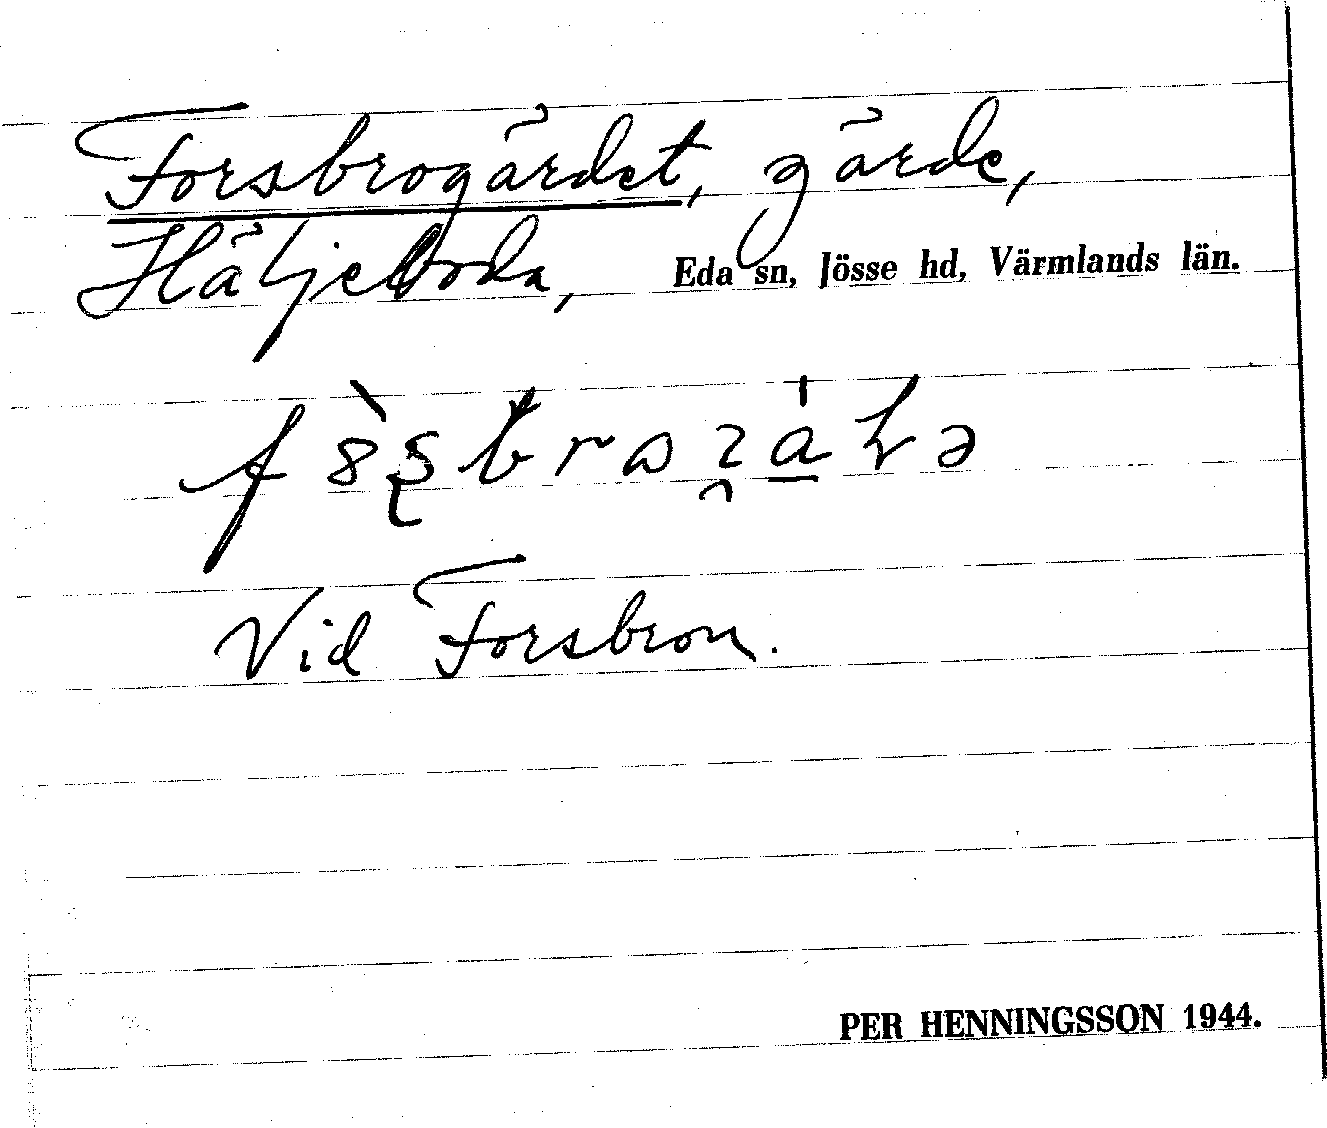 Forsbrogärdet, gärde,
Häljeboda, Eda sn, Jösse hd, Värmlands län.
Vid Forsbron.
PER HENNINGSSON 1944.